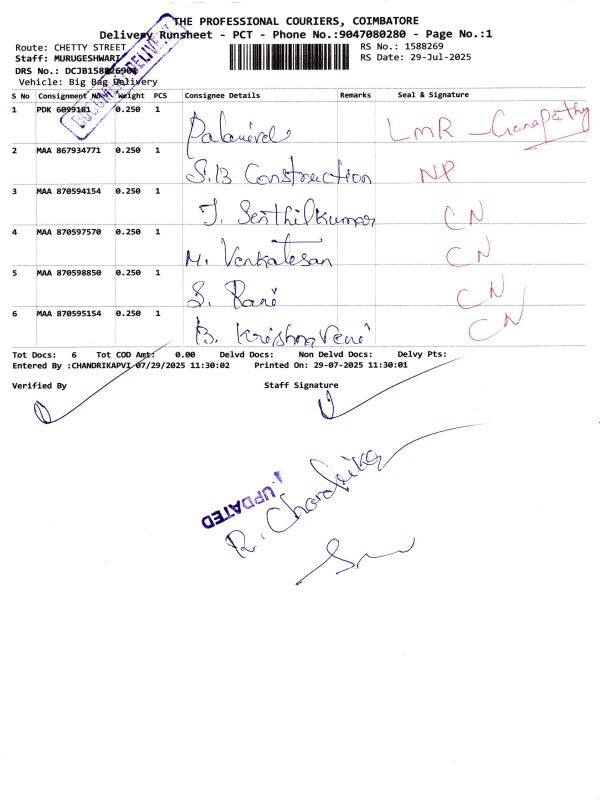 THE PROFESSIONAL COURIERS, COIMBATORE
Delivery Runsheet - PCT - Phone No.:9047080280 - Page No.:1
Route: CHETTY STREET
RS No.: 1588269
Staff: MURUGESHWARI
RS Date: 29-Jul-2025
DRS No.: DCJB1588269
Vehicle: Big Bag Delivery
DOCUMENT DELIVERY
S No Consignment No Weight PCS Consignee Details Remarks Seal & Signature
1 PDK 6099181 0.250 1 Palanivel LMR - Ganapathy
2 MAA 867934771 0.250 1 S.B Construction NP
3 MAA 870594154 0.250 1 J. Senthilkumar CN
4 MAA 870597570 0.250 1 M. Venkatesan CN
5 MAA 870598850 0.250 1 S. Rani CN
6 MAA 870595154 0.250 1 B. Krishnaveni CN
Tot Docs: 6 Tot COD Amt: 0.00 Delvd Docs: Non Delvd Docs: Delvy Pts:
Entered By :CHANDRIKAPVI 07/29/2025 11:30:02 Printed On: 29-07-2025 11:30:01
Verified By Staff Signature
UPDATED
R. Chandrika